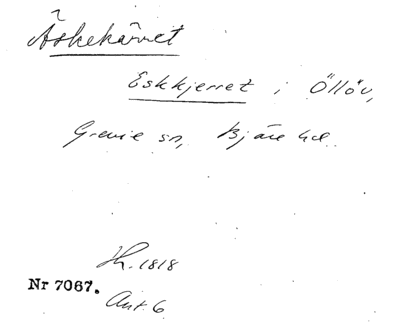 Äskekärret
Eskkjerret i Öllöv,
Grevie sn, Bjäre hd.
Th. 1818
Nr 7067.
Ant 6